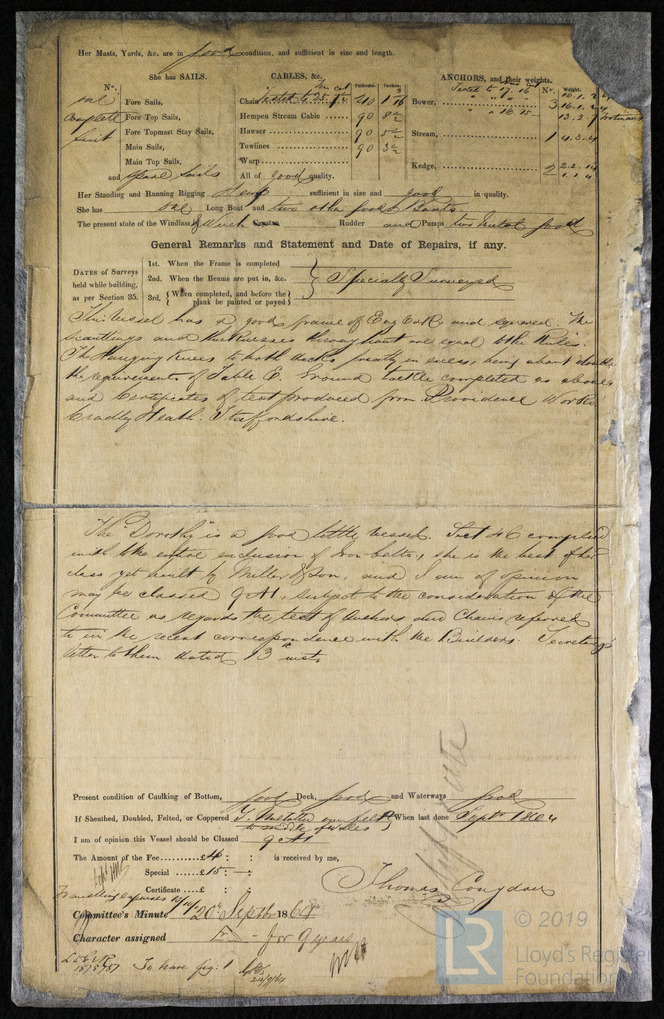 Her Masts, Yards, &c. are in good condition, and sufficient in size and length.
She has SAILS.
CABLES, &c.
ANCHORS, and their weights.
No.
Fathoms.
Inches.
No.
Weight.
one Fore Sails,
Chain
Tested to
90 1 7/16
Bower,
Tested to 17.16
3 16.1.24
complete Fore Top Sails,
Hempen Stream Cable
90 8½
16.15
16.1.24
suit Fore Topmast Stay Sails,
Hawser
90 5½
13.2.7
Main Sails,
Towlines
90 3½
Stream,
1 4.3.4
Main Top Sails,
Warp
and spare Sails
All of good quality.
Kedge,
2 2.2.14
Her Standing and Running Rigging Hemp sufficient in size and good in quality.
She has one Long Boat and two other good Boats
The present state of the Windlass & Winch Capstan Rudder and Pumps two metal good
General Remarks and Statement and Date of Repairs, if any.
DATES of Surveys held while building, as per Section 35.
1st. When the Frame is completed
2nd. When the Beams are put in, &c.
3rd. {When completed, and before the plank be painted or payed}
Specially Surveyed
This Vessel has a good frame of Eng Oak and squared. The
scantlings and thicknesses throughout are equal to the Rules.
The Hanging Knees to both decks greatly in excess, being about double
the requirements of Table C. Ground tackle completed as above
and Certificates of test produced from Providence Works
Cradley Heath. Staffordshire.
The "Dorothy" is a good little vessel. Sect 46 complied
with the entire exclusion of Iron bolts, she is the best of her
class yet built by Miller & Son, and I am of opinion
may be classed 9 A1, subject to the consideration of the
Committee as regards the test of Anchors and Chains referred
to in the recent correspondence with the Builders. Secretary's
letter to them dated 13th inst.
Present condition of Caulking of Bottom, good Deck, good and Waterways good
If Sheathed, Doubled, Felted, or Coppered Y. Metalled over felt When last done Septr 1864
to middle of Wales
I am of opinion this Vessel should be Classed 9 A1
The Amount of the Fee £4 : : is received by me,
Special £15 : — :
Certificate £ : :
Thomas Congdon
Travelling expenses
Committee's Minute 20th Septr 1864
Character assigned for 9 years
To have fig. 1
LR
© 2019
Lloyd's Register
Foundation